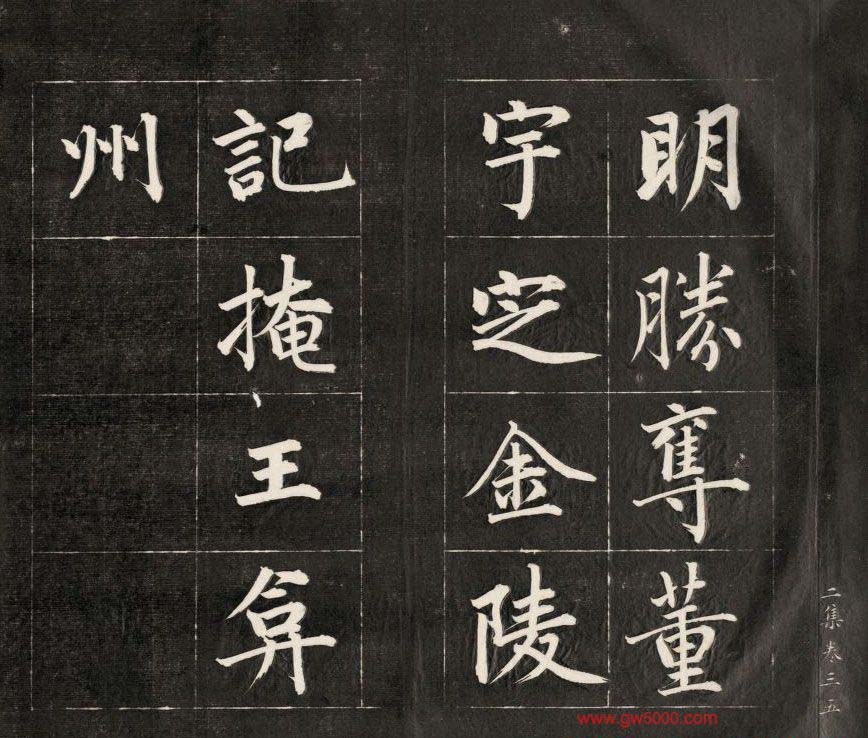 明勝奪董
宇定金陵
記掩王弇
州
二集卷三五
www.gw5000.com